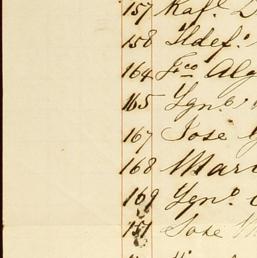 157 Rafl D
158 Ildefo
164 Fco Alg
165 Ygno
167 Jose Y
168 Mari
169 Ygno
171 Jose M